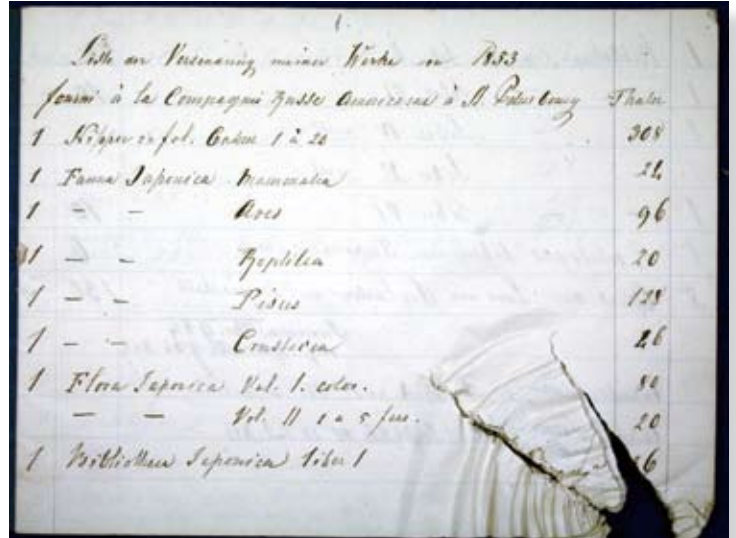 1.
Liste der Versendung meiner Werke in 1853
fourni à la Compagnie Russe Americaine à St Petersbourg Thaler
1 Nippon in fol. Cahier 1 à 20 308
1 Fauna Japonica Mammalia
1 — — Aves 96
1 — — Reptilia 20
1 — — Pisces 128
1 — — Crustacea 26
1 Flora Japonica Vol. I. color. 80
— — Vol. II 1 a 5 fasc. 20
1 Bibliotheca Japonica liber 1 6